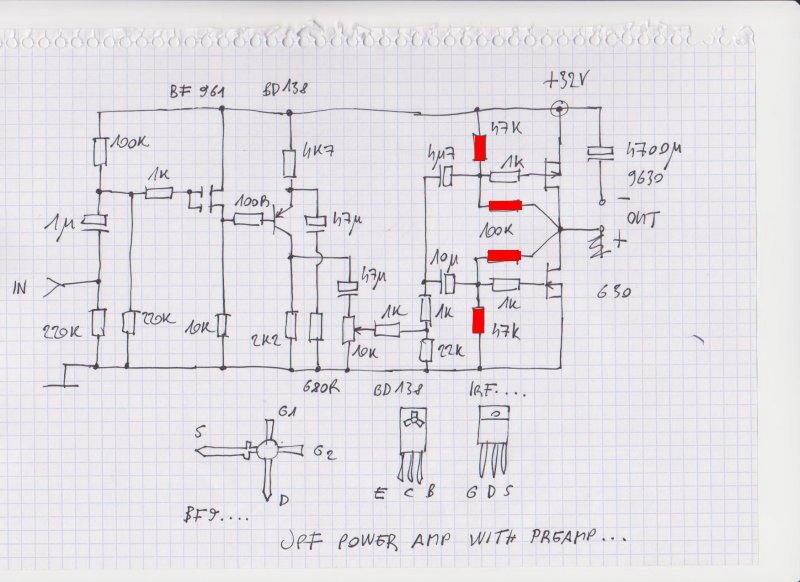 BF 961
BD138
+32V
100K
1K
4K7
4µ7
47K
1K
4700µ
9630
-
OUT
+
1µ
100R
47µ
100K
IN
47µ
10µ
1K
630
220K
220K
10K
2K2
1K
1K
47K
10K
22K
680R
BD138
IRF....
S
G1
G2
D
E C B
G D S
BF9....
JPF POWER AMP WITH PREAMP...